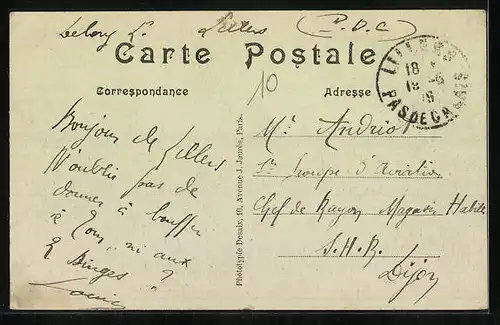 Lillers (P.D.C)
Carte Postale
Correspondance
Adresse
10
LILLERS
18
PAS DE CALAIS
Bonjour de Lillers
N'oublie pas de
donner à bouffer
à "ni aux
2 Singes"
Louis
Mr Andriot
1er Groupe d'Aviation
Chef de Rayon Magasin Habile
S.H.R.
Dijon
Phototypie Desaix, 10, Avenue J. Jaurès, Paris.